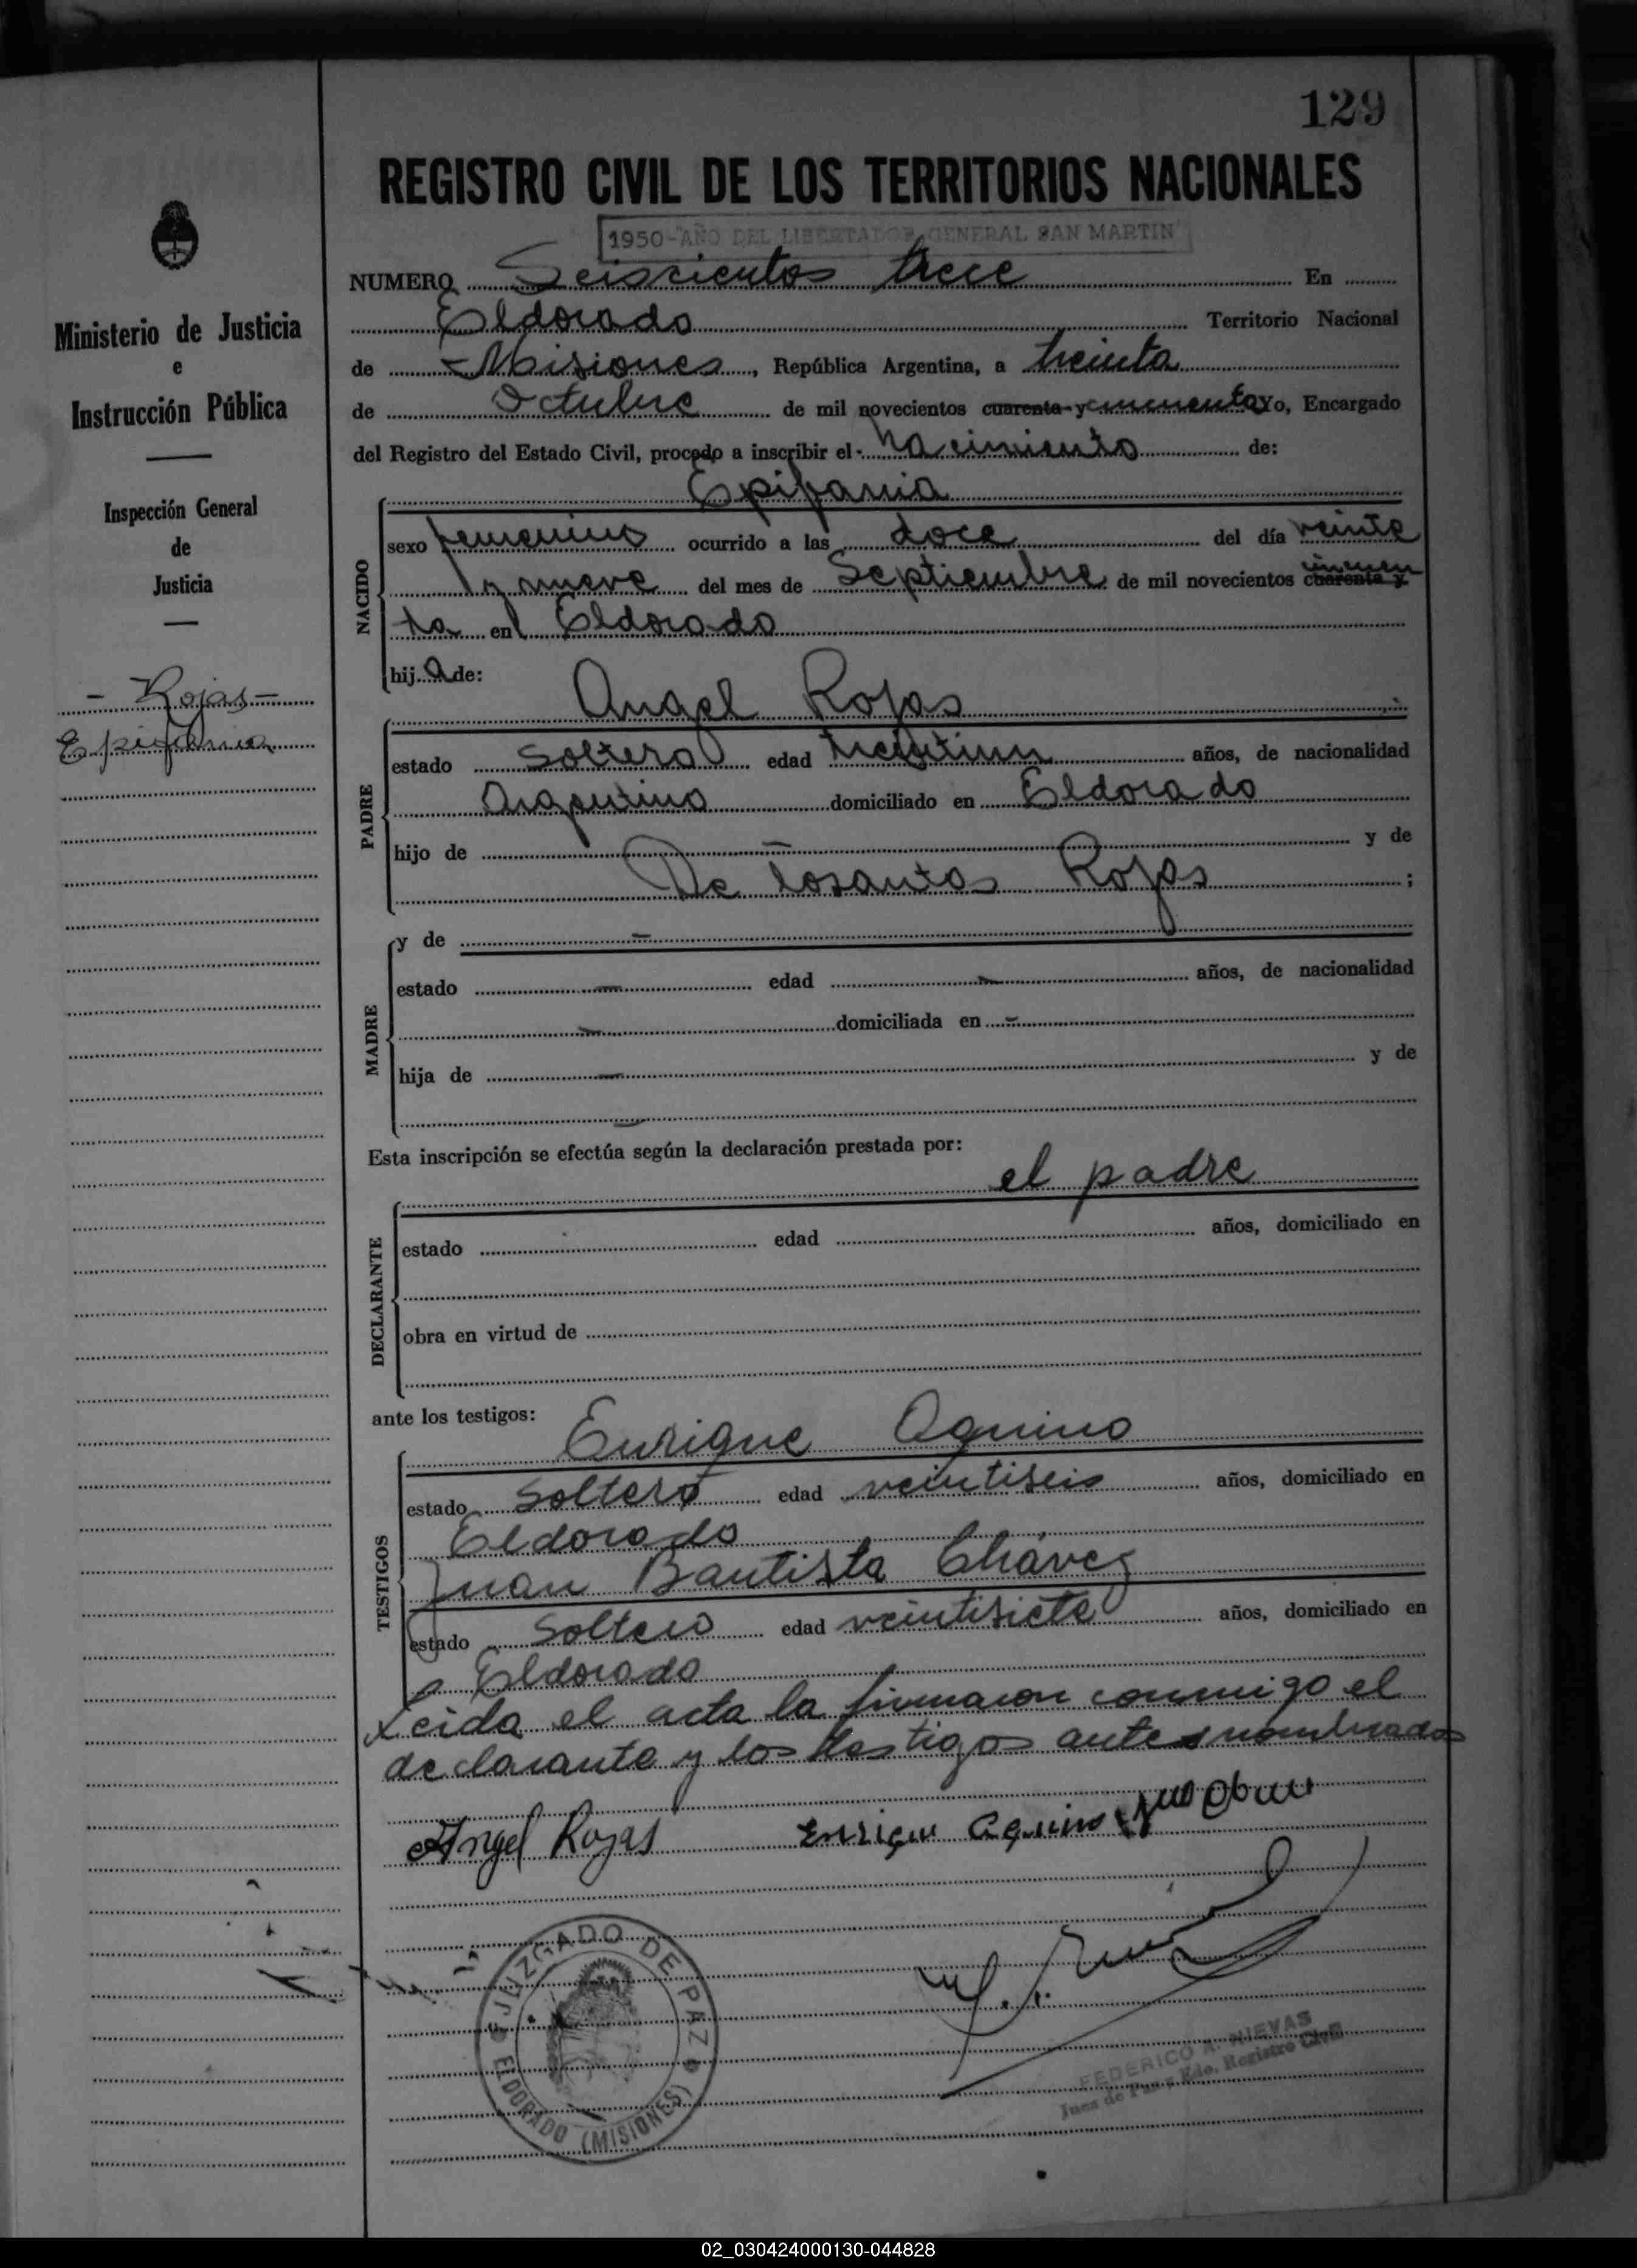 129
REGISTRO CIVIL DE LOS TERRITORIOS NACIONALES
1950-"AÑO DEL LIBERTADOR GENERAL SAN MARTIN"
NUMERO Seiscientos trece En
Eldorado Territorio Nacional
de Misiones, República Argentina, a treinta
de Octubre de mil novecientos cuarenta y cincuenta Yo, Encargado
del Registro del Estado Civil, procedo a inscribir el Nacimiento de:
Epifania
NACIDO
sexo femenino ocurrido a las doce del día veinte
y nueve del mes de Septiembre de mil novecientos cuarenta y cincuen
ta en Eldorado
hija de:
Angel Rojas
PADRE
estado Soltero edad treintiun años, de nacionalidad
Argentino domiciliado en Eldorado
hijo de - y de
De losantos Rojas ;
MADRE
y de -
estado - edad - años, de nacionalidad
- domiciliada en -
hija de - y de
-
Esta inscripción se efectúa según la declaración prestada por:
el padre
DECLARANTE
estado edad años, domiciliado en
obra en virtud de
ante los testigos:
Enrique Aquino
TESTIGOS
estado Soltero edad veintiseis años, domiciliado en
Eldorado
Juan Bautista Chávez
estado Soltero edad veintisiete años, domiciliado en
Eldorado
Leida el acta la firmaron conmigo el
declarante y los testigos antes nombrados
Angel Rojas Enrique Aquino
JUZGADO DE PAZ
ELDORADO (MISIONES)
FEDERICO A. NIEVAS
Juez de Paz y Edo. Registro Civil
Ministerio de Justicia
e
Instrucción Pública
Inspección General
de
Justicia
- Rojas -
Epifania
02_030424000130-044828